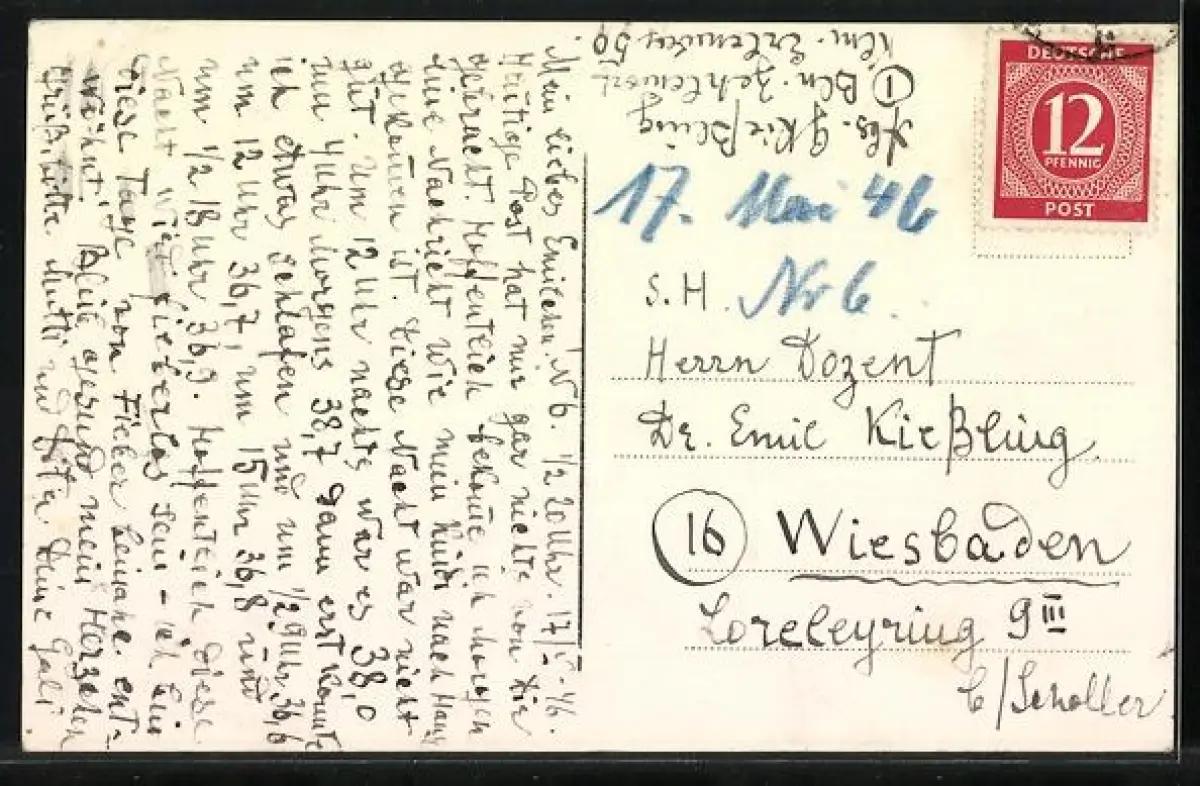 Mein liebes Emilchen! N6. 1/2 20 Uhr. 17/5-46.
Heutige Post hat mir gar nichts von Dir
gebracht. Hoffentlich bekomme ich morgen
eine Nachricht wie mein Kind nach Haus
gekommen ist. Diese Nacht war nicht
gut. Um 12 Uhr nachts war es 38,0
um 4 Uhr Morgens 38,7 dann erst konnte
ich etwas schlafen und um 1/2 9 Uhr 36,6
um 12 Uhr 36,7, um 15 Uhr 36,8 und
um 1/2 18 Uhr 36,9. Hoffentlich diese
Nacht wird fieberlos sein - ich bin
diese Tage von Fieber beinahe ent-
wöhnt. Bleib gesund mein Herzchen
Grüß Mutti und Dine Gali
Abs. G Kießling
1 Bln. Zehlendorf
59.
17. Mai 46
S. H. Nr 6.
Herrn Dozent
Dr. Emil Kießling
16 Wiesbaden
Loreleyring 9 III
b/Scholler
DEUTSCHE
12
PFENNIG
POST